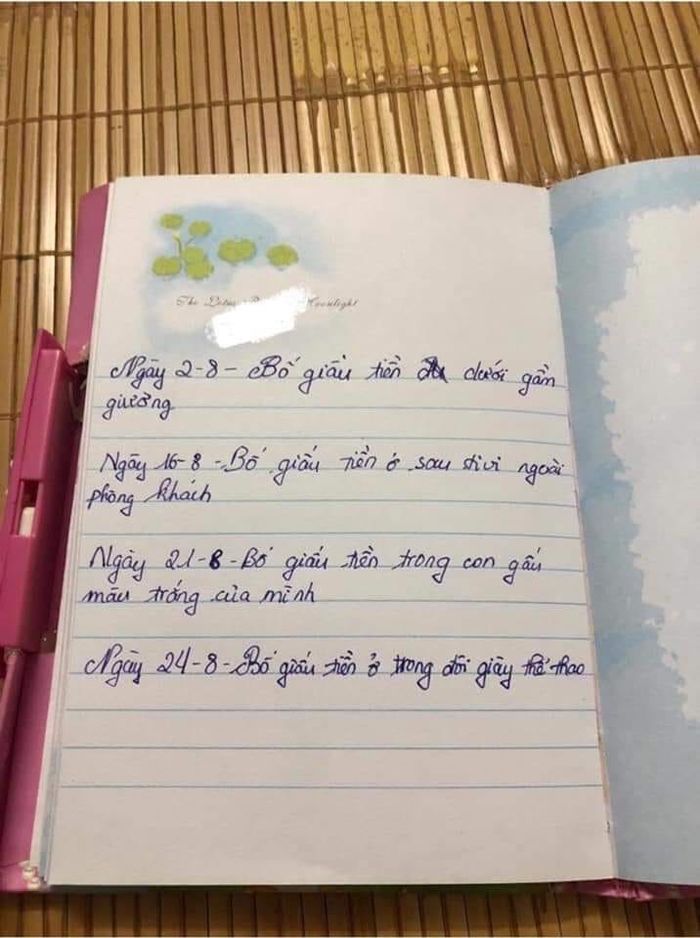 The Lotus Moonlight
Ngày 2-8 - Bố giấu tiền dưới gần
giường
Ngày 16-8 - Bố giấu tiền ở sau tivi ngoài
phòng khách
Ngày 21-8 - Bố giấu tiền trong con gấu
màu trắng của mình
Ngày 24-8 - Bố giấu tiền ở trong đôi giày thể thao